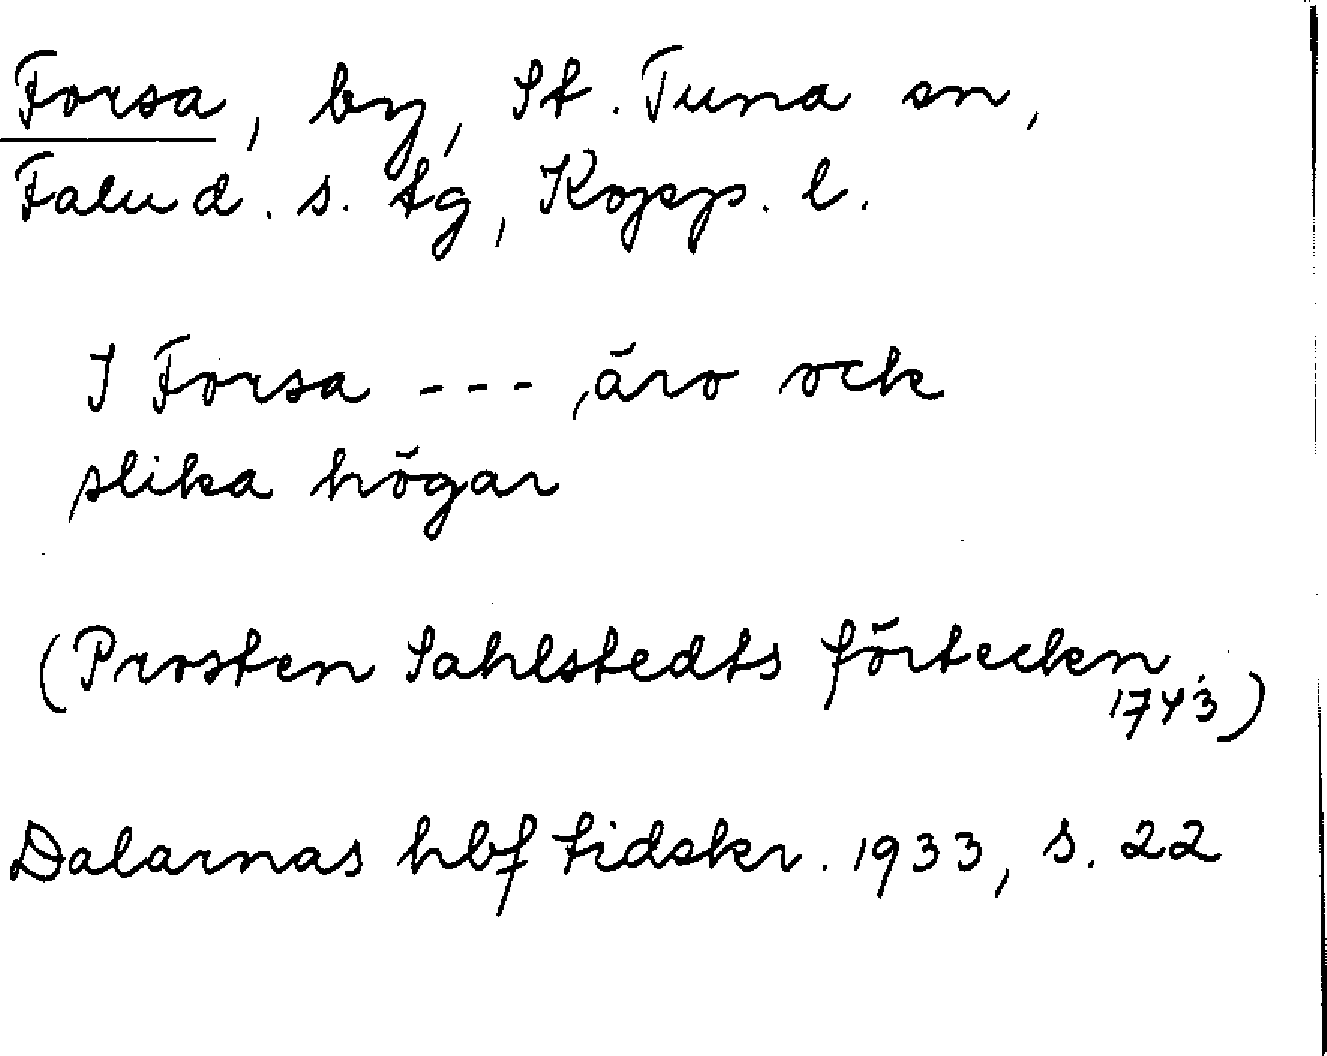 Forsa, by, St. Tuna sn,
Falu d. s. tg, Kopp. l.
I Forsa --- , äro ock
slika högar
(Prosten Sahlstedts förteckn.
1743)
Dalarnas hbf tidskr. 1933, s. 22